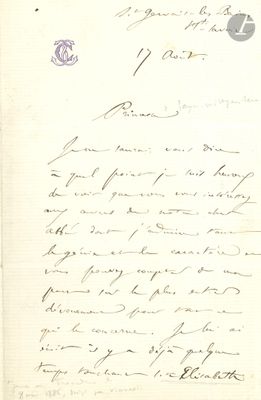 St Gervais les Bains
Hte Savoie
17 Août.
Princesse
Je ne saurais vous dire
à quel point je suis heureux
de voir que vous vous intéressez
aux œuvres de notre cher
abbé dont j'admire tant
le génie et le caractère et
vous pouvez compter de ma
part sur le plus entier
dévouement pour tout ce
qui le concerne. Je lui ai
écrit il y a déjà quelque
temps touchant Ste Elisabeth